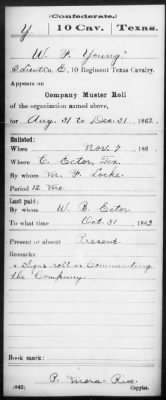 (Confederate.)
Y. 10 Cav. Texas.
W. F. Young
3 Lieut Co. E, 10 Regiment Texas Cavalry.
Appears on
Company Muster Roll
of the organization named above,
for Aug. 31 to Dec. 31, 1862.
Enlisted:
When Nov. 7, 186
Where C. Ector, Tex
By whom M. F. Locke
Period 12 Mo.
Last paid:
By whom W. B. Ector
To what time Oct. 31, 1862
Present or absent Present
Remarks
Signs roll as Commanding
the Company.
Book mark:
P. Mora Rice
(642) Copyist.